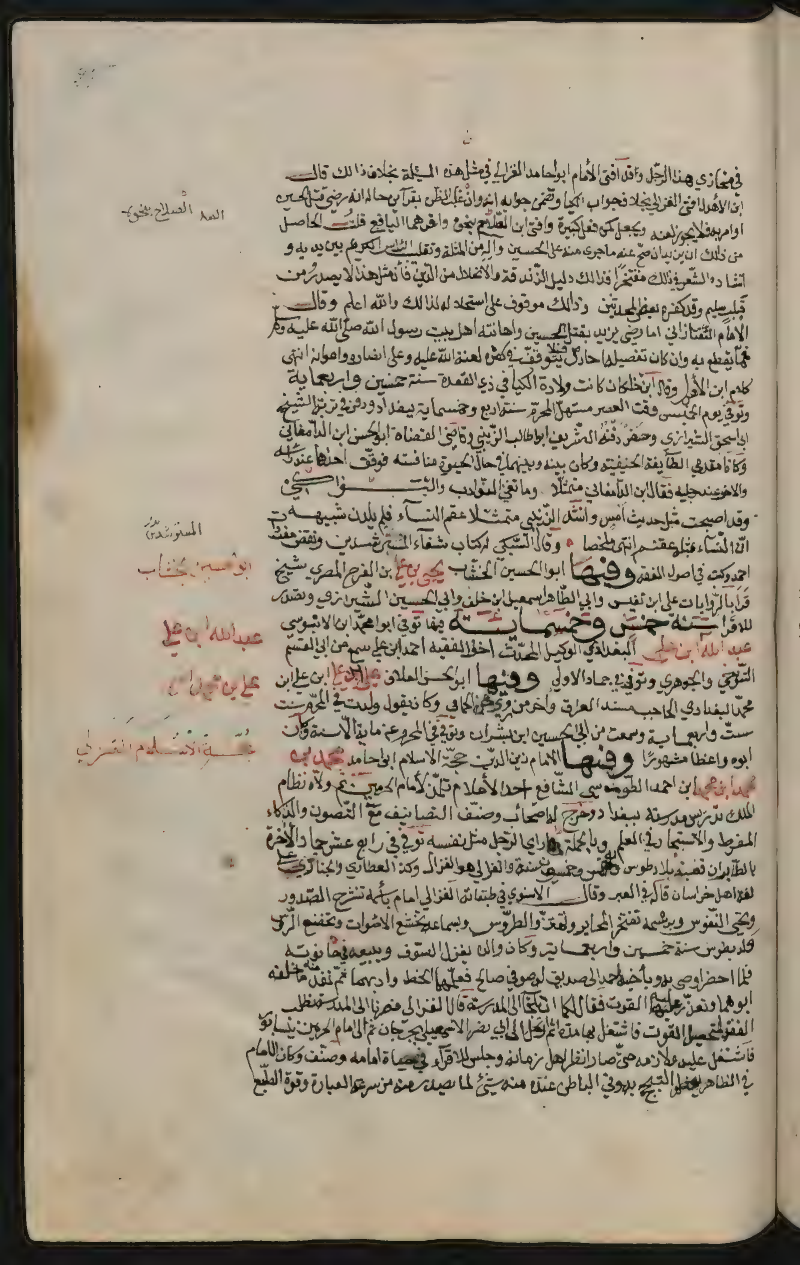 في مخازي هذا الرجل وقد افتى الأمام ابو حامد الغزالي في مثل هذه المسئلة بخلاف ذالك قال
ابن الأهدل افتى الغزالي بخلاف جواب الكيا وتضمن جوابه انه وان غلب الظن بقرائن حاله انه رضي قتل الحسين
او امر به فلا يجوز لعنه ويجعل كمن فعل كبيرة وافتى ابن الصلاح بنحو وافقهما اليافعي قلت الحاصل
من ذلك ان يزيد ان صح عنه ما جرى منه على الحسين واله من المثلة وتقليب الراس الكريم بين يديه و
انشاده الشعر في ذلك مفتخرا فذالك دليل الزندقة والانحلال من الدين فأن مثل هذا لا يصدر من
قلب سليم وقد كفره بعض المحدثين وذالك موقوف على استحلاله لذالك والله اعلم وقال
الامام التفتازاني اما رضى يزيد بقتل الحسين واهانته اهل بيت رسول الله صلى الله عليه وسلم
فمما يقطع به وان كان تفصيله احاد فلا يتوقف في كفره لعنة الله عليه وعلى انصاره واعوانه انتهى
كلام ابن الأهدل وقال ابن خلكان كانت ولادة الكيا في ذي القعدة سنة خمسين واربعماية
وتوفي يوم الخميس وقت العصر مستهل المحرم سنة اربع وخمسماية ببغداد ودفن في تربة الشيخ
ابي اسحق الشيرازي وحضر دفنه الشريف ابو طالب الزينبي وقاضي القضاة ابو الحسن ابن الدامغاني
وكانا مقدمي الطايفة الحنفية وكان بينه وبينهما في حال الحيوة منافسة فوقف احدهما عند راسه
والاخر عند رجليه فقال ابن الدامغاني متمثلا وما تغني النوادب والبواكي
وقد اصبحت مثل حديث امس وانشد الزينبي متمثلا عقم النساء فلم يلدن شبيهه
ان النساء بمثله عقم انتهى ملخصا وقال السبكي له كتاب شفاء المسترشدين ونقض مفردات
احمد وكتب في اصول الفقه وفيها ابو الحسين الخشاب يحيى بن علي بن الفرج المصري شيخ
قرا بالروايات على ابن نفيس وابي الطاهر اسمعيل بن خلف وابي الحسين الشيرازي وتصدر
للاقرا سنة خمس وخمسماية فيها توفي ابو محمد ابن الابنوسي
عبد الله ابن علي البغدادي الوكيل المحدث اخو الفقيه احمد ابن علي سمع من ابي القسم
التنوخي والجوهري وتوفي في جماد الاولى وفيها ابو الحسن العلاف علي ابن علي ابن
محمد البغدادي الحاجب مسند العراق واخر من روى عن الحمامي وكان يقول ولدت في المحرم سنة
ست واربعماية وسمعت من ابي الحسين ابن بشران وتوفي في المحرم عن ماية الا سنة وكان
ابوه واعظا مشهورا وفيها الامام زين الدين حجة الاسلام ابو حامد محمد بن
محمد ابن محمد ابن احمد الطوسي الشافعي احد الأعلام تلمذ لأمام الحرمين ثم ولاه نظام
الملك تدريس مدرسته ببغداد وخرج له اصحاب وصنف التصانيف مع التصون والذكاء
المفرط والاستبحار في العلم وبالجملة ما راى الرجل مثل نفسه توفي في رابع عشر جماد الأخرة
بالطابران قصبة بلاد طوس وله خمس وخمسون سنة والغزالي هو الغزال وكذا العطاري والخبازي على
لغة اهل خراسان قاله في العبر وقال الاسنوي في طبقاته الغزالي امام باسمه تنشرح الصدور
وتحيى النفوس وبرسمه تفتخر المحابر وتهتز الطروس وبسماعه تخشع الاصوات وتخضع الرؤس
ولد بطوس سنة خمسين واربعماية وكان والده يغزل الصوف ويبيعه في حانوته
فلما احتضر اوصى به وباخيه احمد الى صديق له صوفي صالح فعلمهما الخط وادبهما ثم نفذ منه ما خلفه
ابوهما وتعذر عليهما القوت فقال لكما ان تلجآ الى المدرسة قال الغزالي فصرنا الى المدرسة نطلب
الفقه لتحصيل القوت فاشتغل بها مدة ثم ارتحل الى ابي نصر الاسمعيلي بجرجان ثم الى امام الحرمين بنيسابور
فاشتغل عليه ولازمه حتى صار انظر اهل زمانه وجلس للاقراء في حياة امامه وصنف وكان الامام
في الظاهر يظهر التبجح به وفي الباطن عنده منه شيئ لما يصدر منه من سرعة العبارة وقوة الطبع
الصلاح بنحو
المسترشدين
ابو الحسين الخشاب
عبد الله ابن علي
علي بن
حجة الاسلام الغزالي